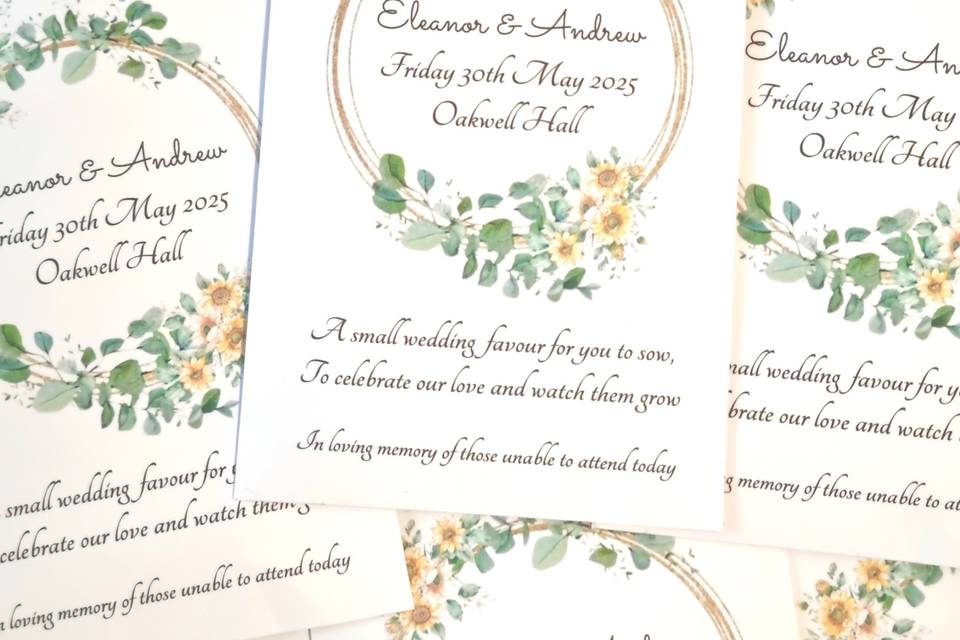 Eleanor & Andrew
Friday 30th May 2025
Oakwell Hall
A small wedding favour for you to sow,
To celebrate our love and watch them grow
In loving memory of those unable to attend today
& Andrew
30th May 2025
Oakwell Hall
small wedding favour for
our love and watch them
loving memory of those unable to attend today
Eleanor &
Friday 30th May
Oakwell Hall
wedding favour for
our love and watch
memory of those unable to